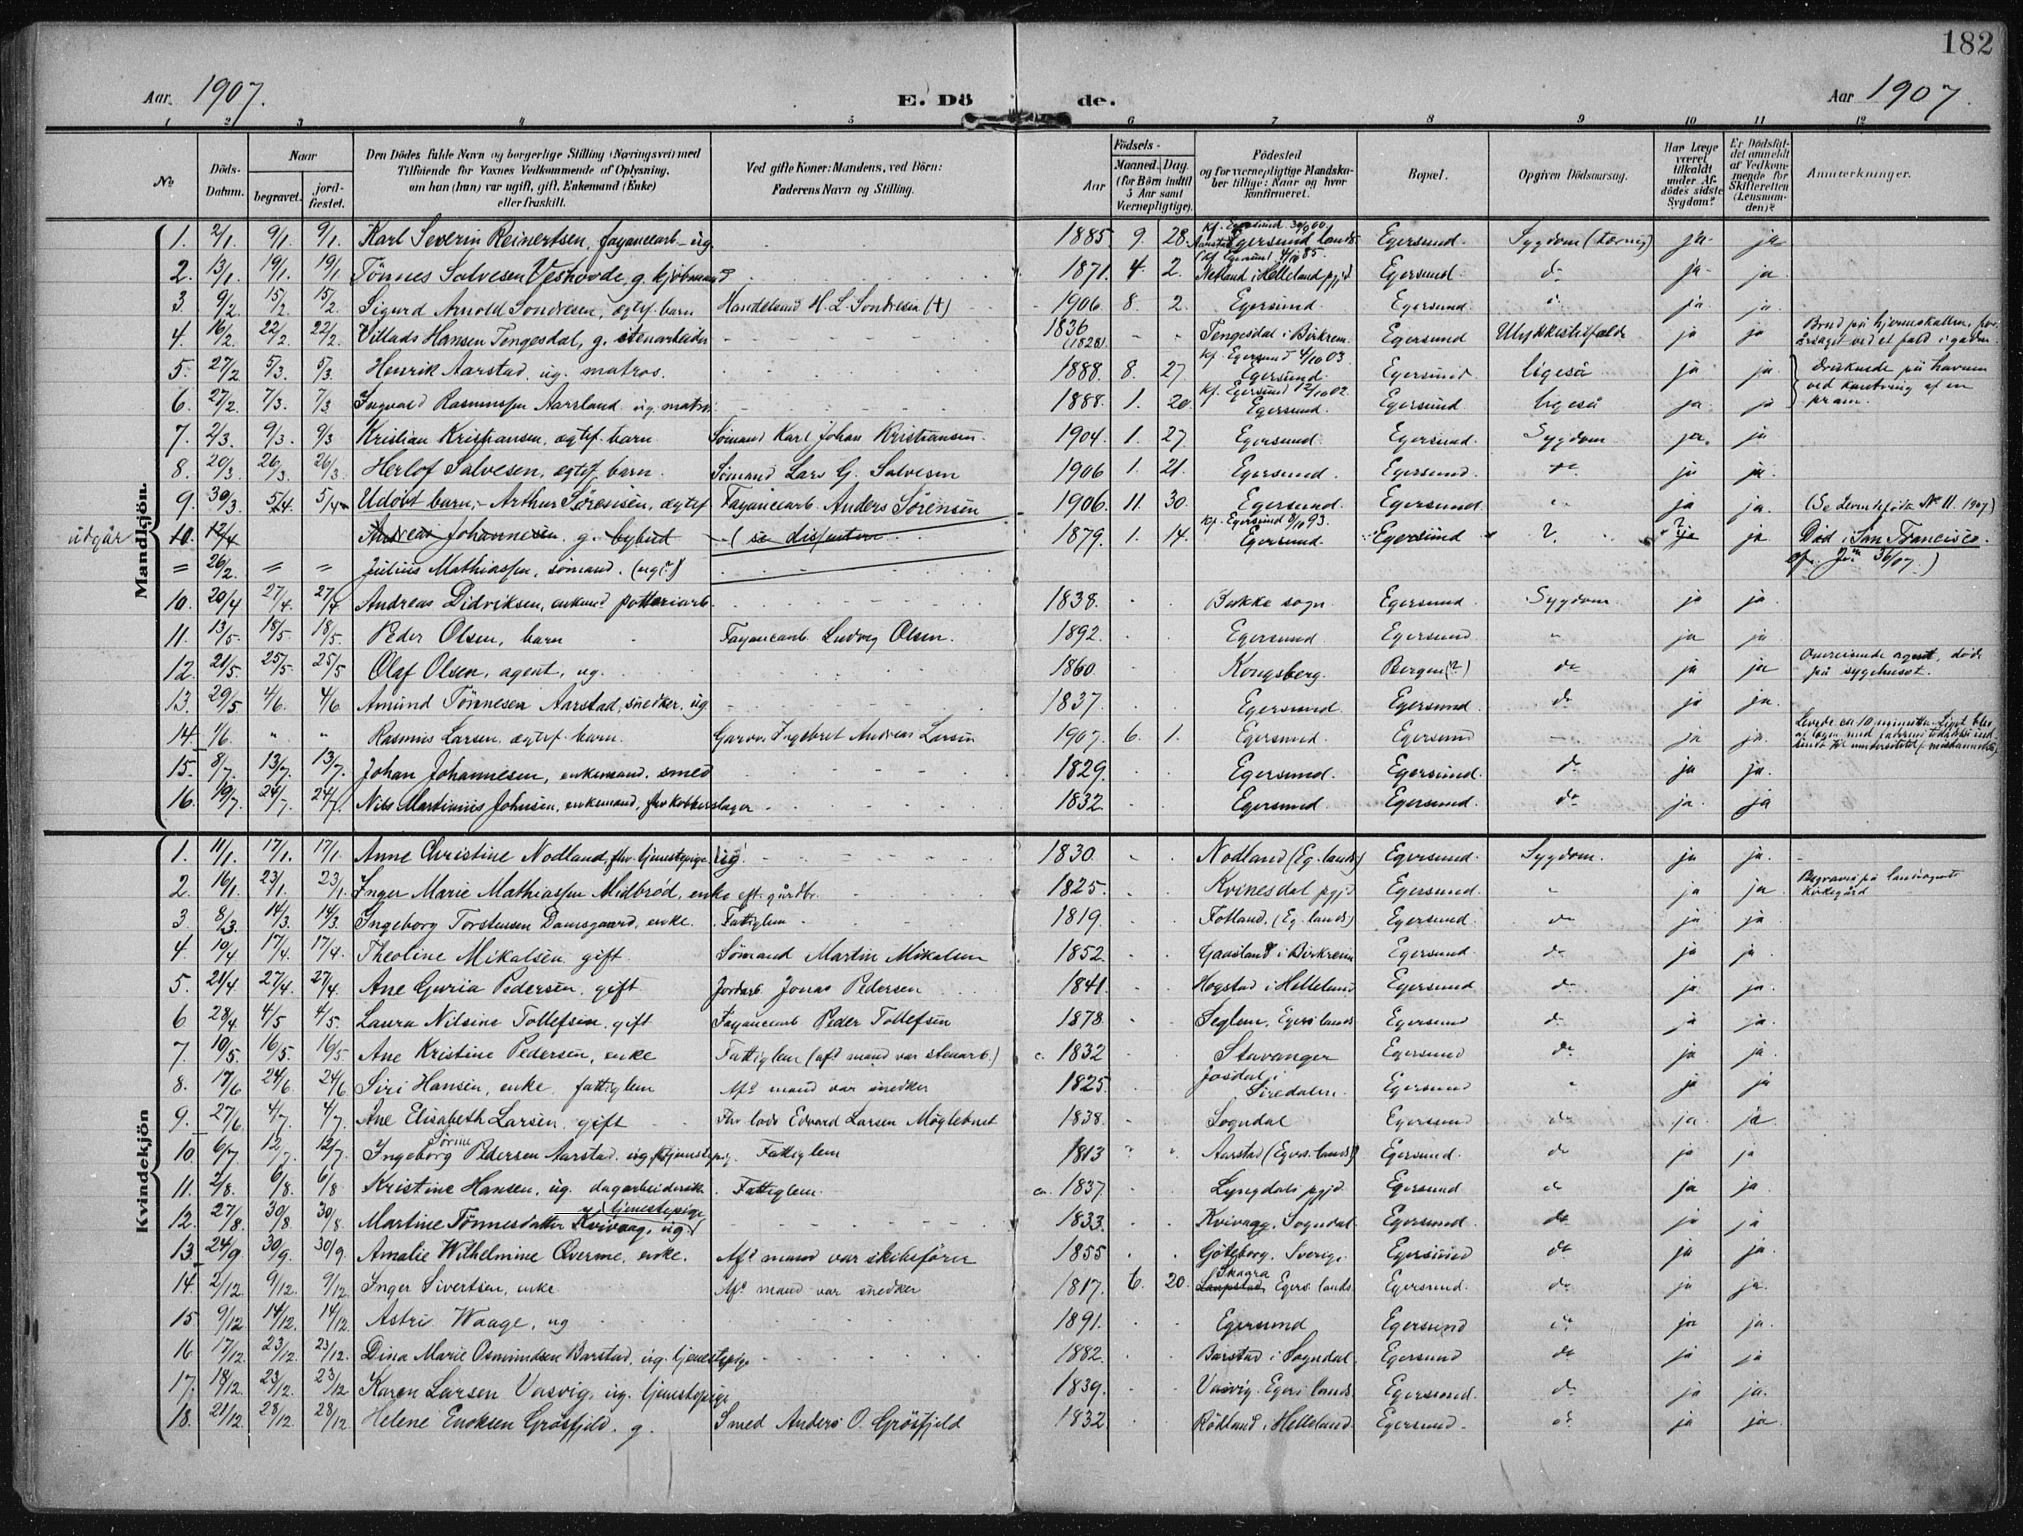 182
Aar 1907.
E. Dö de.
Aar 1907.
1 2 3 4 5 6 7 8 9 10 11 12
No
Döds-Datum.
Naar
begravet.
jord-fæstet.
Den Dödes fulde Navn og borgerlige Stilling (Næringsvei) med
Tilföiende for Voxnes Vedkommende af Oplysning,
om han (hun) var ugift, gift, Enkemand (Enke)
eller fraskilt.
Ved gifte Koner: Mandens, ved Börn:
Faderens Navn og Stilling.
Födsels-
Aar
Maaned. Dag.
(for Börn indtil
5 Aar samt
Værnepligtige).
Födested
og for værnepligtige Mandska-
ber tillige: Naar og hvor
konfirmeret.
Bopæl.
Opgiven Dödsaarsag.
Har Læge
været
tilkaldt
under Af-
dödes sidste
Sygdom?
Er Dödsfal-
det anmeldt
af Vedkom-
mende for
Skifteretten
(Lensman-
den)?
Anmærkninger.
Mandkjön.
1. 2/1 9/1. 9/1. Karl Severin Reinertsen, fayancearb. ug. 1885. 9. 28. Kf. Egersund 30/9 00. Aarstad Egersund lands. Egersund. Sygdom (tæring) ja ja
2. 13/1 19/1. 19/1 Tønnes Salvesen Veshovde, g. kjøbmand 1871. 4. 2. (Kf. Egersund 4/10 85. Netland i Helleland pgjd Egersund d⁰ ja ja
3. 9/2 15/2. 15/2. Sigurd Arnold Sondresen, ægtef. barn Handelsmd H. L. Sondresen (+) 1906 8. 2. Egersund. Egersund. ja ja
4. 16/2 22/2 22/2 Villads Hansen Tengesdal, g. stenarbeider 1836 (1828) Tengesdal i Birkrem Egersund Ulykkestilfælde ja ja Brud på hjerneskallen, for-
årsaget ved et fald i gaden.
5. 27/2 5/3. 5/3. Henrik Aarstad. ug. matros. 1888. 8. 27 Kf. Egersund 4/10 03 Egersund. Egersund. ligeså ja ja Druknede på havnen
6. 27/2 7/3. 7/3 Ingvald Rasmussen Aarsland ug. matros 1888. 1. 20. Kf. Egersund 12/10 02. Egersund. Egersund. ligeså ja ja ved kantring af en
pram.
7. 2/3. 9/3. 9/3 Kristian Kristiansen, ægtef. barn. Sømand Karl Johan Kristiansen. 1904. 1. 27 Egersund. Egersund. Sygdom ja ja
8. 20/3 26/3 26/3 Herlof Salvesen, ægtef. barn. Sømand Lars G. Salvesen 1906 1. 21. Egersund. Egersund. d⁰ ja ja.
9. 30/3 5/4. 5/4 Udøbt barn, Arthur Sørensen, ægtef Fayancearb. Anders Sørensen 1906. 11. 30. Egersund. Egersund. ja ja. (Se Levendefødte No 11. 1907)
udgår 10. 12/4 Andreas Johannesen g. bybud (se dissentern 1879. 1. 14. Kf. Egersund 8/10 93. Egersund. Egersund ? ja ja Død i San Francisco.
= 26/2 = = Julius Mathiassen, sømand. (ug?) cf. 36/07.)
10. 20/4 27/4. 27/4. Andreas Didriksen, enkemd potteriarb. 1838. Bakke sogn. Egersund. Sygdom. ja ja.
11. 13/5. 18/5 18/5. Peder Olsen, barn Fayancearb. Ludvig Olsen. 1892. Egersund. Egersund " ja ja
12. 21/5. 25/5 25/5 Olaf Olsen, agent, ug. 1860. Kongsberg. Bergen (?) d⁰ ja ja Omreisende agent, døde
på sygehuset.
13. 29/5 4/6. 4/6 Amund Tønnesen Aarstad, snedker, ug 1837. Egersund Egersund. d⁰ ja ja.
14. 1/6. " " Rasmus Larsen. ægtef. barn. Garver Ingebret Andreas Larsen 1907. 6. 1. Egersund. Egersund — ja ja. Levede ca 10 minutter. Liget blev
15. 8/7. 13/7. 13/7. Johan Johannesen, enkemand. smed 1829. Egersund. Egersund. d⁰ ja ja.
16. 19/7. 24/7. 24/7. Nils Martinius Johnsen, enkemand, fhv kobberslager 1832. Egersund Egersund. d⁰ ja. ja
Kvindekjön
1. 11/1. 17/1. 17/1 Anne Christine Nodland, fhv. tjenestepige. ug 1830. Nodland (Eg. lands.) Egersund. Sygdom. ja ja.
2. 16/1. 23/1. 23/1. Inger Marie Mathiassen Midbrød, enke eft. gårdbr. 1825. Kvinesdal pgjd Egersund. " ja ja. Begraves på landsognets
kirkegård
3 8/3. 14/3. 14/3. Ingeborg Torstensen Damsgaard, enke. Fattiglem 1819. Fotland. (Eg. lands) Egersund. d⁰ ja ja
4 10/4 17/4. 17/4. Theoline Mikalsen. gift. Sømand Martin Mikalsen 1852. Gaasland i Birkrem Egersund d⁰ ja ja
5. 21/4 27/4. 27/4. Ane Guria Pedersen, gift Jordarb. Jonas Pedersen 1841. Hogstad i Helleland Egersund d⁰ ja ja
6 28/4. 4/5 4/5. Laura Nilsine Tollefsen. gift Fayancearb Peder Tollefsen 1878. Seglem. Egers. lands Egersund d⁰ ja ja
7. 10/5. 16/5. 16/5 Ane Kristine Pedersen, enke Fattiglem (afd mand var stenarb.) c. 1832 Stavanger Egersund d⁰ ja ja.
8. 17/6 24/6. 24/6 Siri Hansen, enke. fattiglem Afd mand var snedker 1825. Josdal i Siredalen. Egersund " ja ja
9. 27/6. 4/7. 4/7. Ane Elisabeth Larsen. gift Fhv lods Edvard Larsen Møglebust 1838. Sogndal Egersund d⁰ ja. ja.
10. 6/7 12/7. 12/7. Ingeborg Sørine Pedersen Aarstad. ug tjenestepig. Fattiglem 1813 " " Aarstad (Egers. lands) Egersund. d⁰ ja ja
11. 2/8. 6/8. 6/8 Kristine Hansen, ug. dagarbeiderske Fattiglem. ca. 1837. Lyngdals pgjd. Egersund d⁰ ja ja
12. 27/8. 30/8 30/8. Martine Tønnesdatter Kvivaag, ug tjenestepige 1833. Kvivaag. Sogndal Egersund. d⁰ ja ja.
13. 24/9. 30/9. 30/9. Amalie Wilhelmine Qverme, enke. Afd mand var skibsfører 1855 Göteborg. Sverige Egersund d⁰ ja ja.
14. 2/12 9/12. 9/12. Inger Sivertsen, enke Afd mand var snedker 1817. 6. 20. Skaara Egers. lands. Egersund. d⁰ ja ja
15. 9/12 14/12. 14/12. Astri Waage, ug 1891. Egersund Egersund d⁰ ja ja.
16 17/12. 23/12. 23/12. Dina Marie Osmundsen Barstad, ug. tjenestepige 1882. Barstad i Sogndal. Egersund d⁰ ja ja
17. 18/12. 23/12. 23/12 Karen Larsen Vasvig, ug. tjenestepige 1839. Vasvig. Egers. lands. Egersund. d⁰ ja ja.
18. 21/12. 28/12. 28/12. Helene Enoksen Grøsfjeld. g. Smed Anders O. Grøsfjeld 1832. Rødland i Helleland Egersund. d⁰ ja ja.